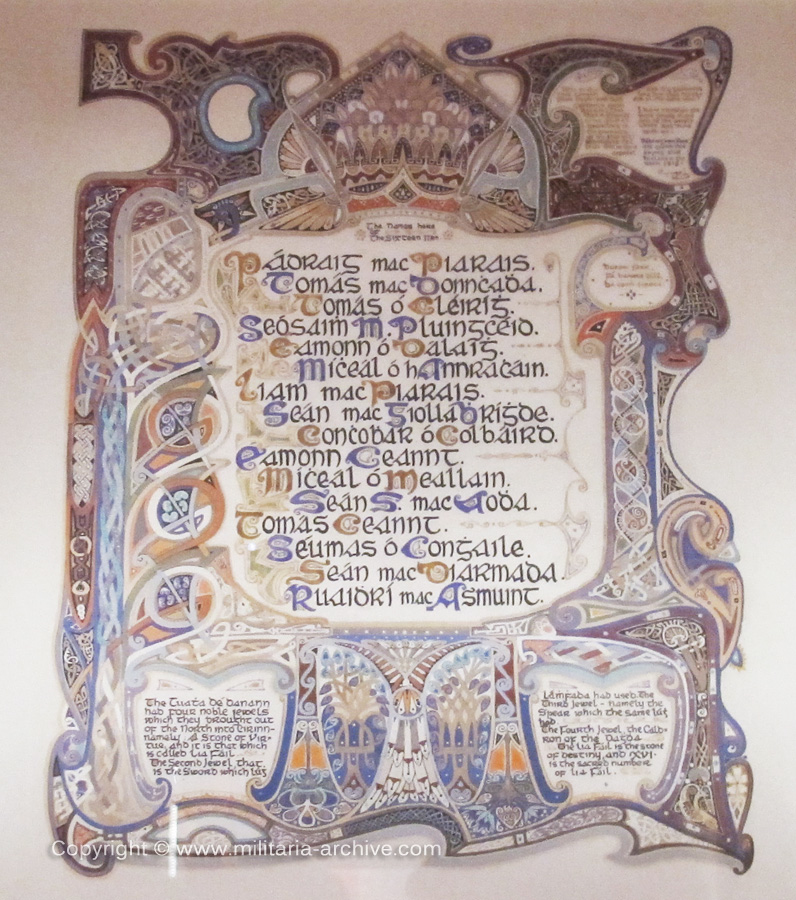 The Names here
The Sixteen Men
Pádraig mac Piarais.
Tomás mac Donncada.
Tomás ó Cléirig.
Seósaim M. Pluingceid.
Eamonn ó Dalaig.
Míceál ó hAnnracain.
Liam mac Piarais.
Seán mac Giolla Brígde.
Concobar ó Colbáird.
Eamonn Ceannt.
Míceál ó Meallain.
Seán S. mac Aoda.
Tomás Ceannt.
Séumas ó Congaile.
Seán mac Diarmada.
Ruaidrí mac Asmuint.
The Tuata De Danann
had four noble jewels
which they brought out
of the North into Eirinn–
namely, A Stone of Vir–
tue, and it is that which
is called Lia Fail.
The Second Jewel that
is the Sword which Lug
Lámfada had used. The
Third Jewel – namely the
Spear which the same Lug
had
The Fourth Jewel, the Cauld–
ron of the Dagda
The Lia Fail is the stone
of destiny, and (XVI)
is the sacred number
of Lia Fail.
Copyright © www.militaria-archive.com